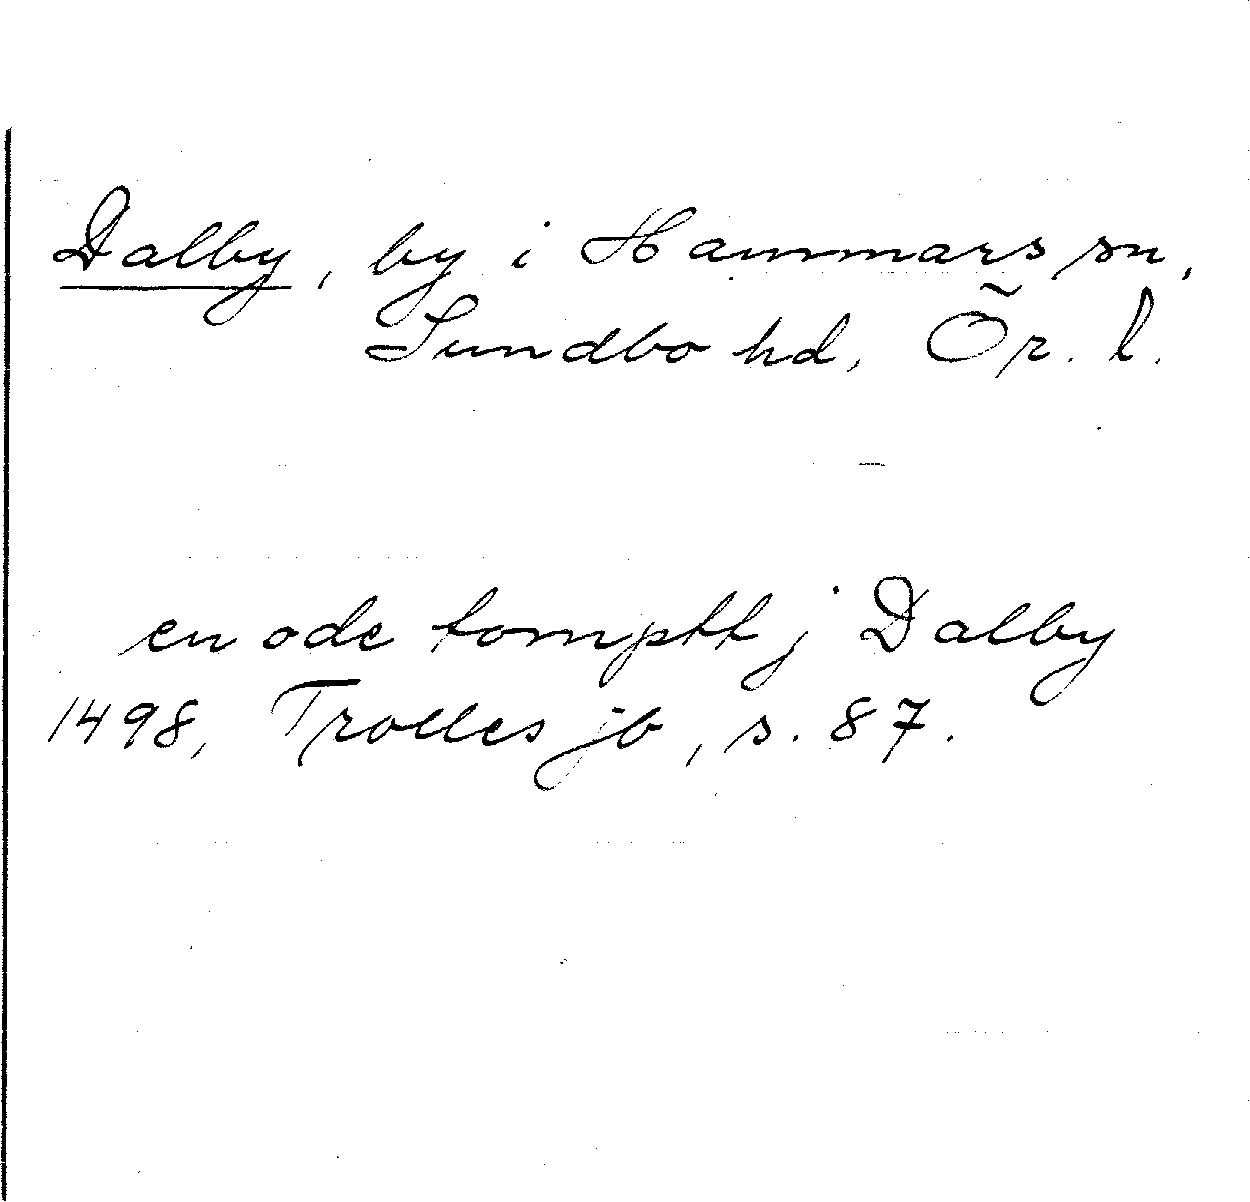 Dalby, by i Hammars sn,
Sundbo hd, Ör. l.
en ode tomptt j Dalby
1498, Trolles jb, s. 87.